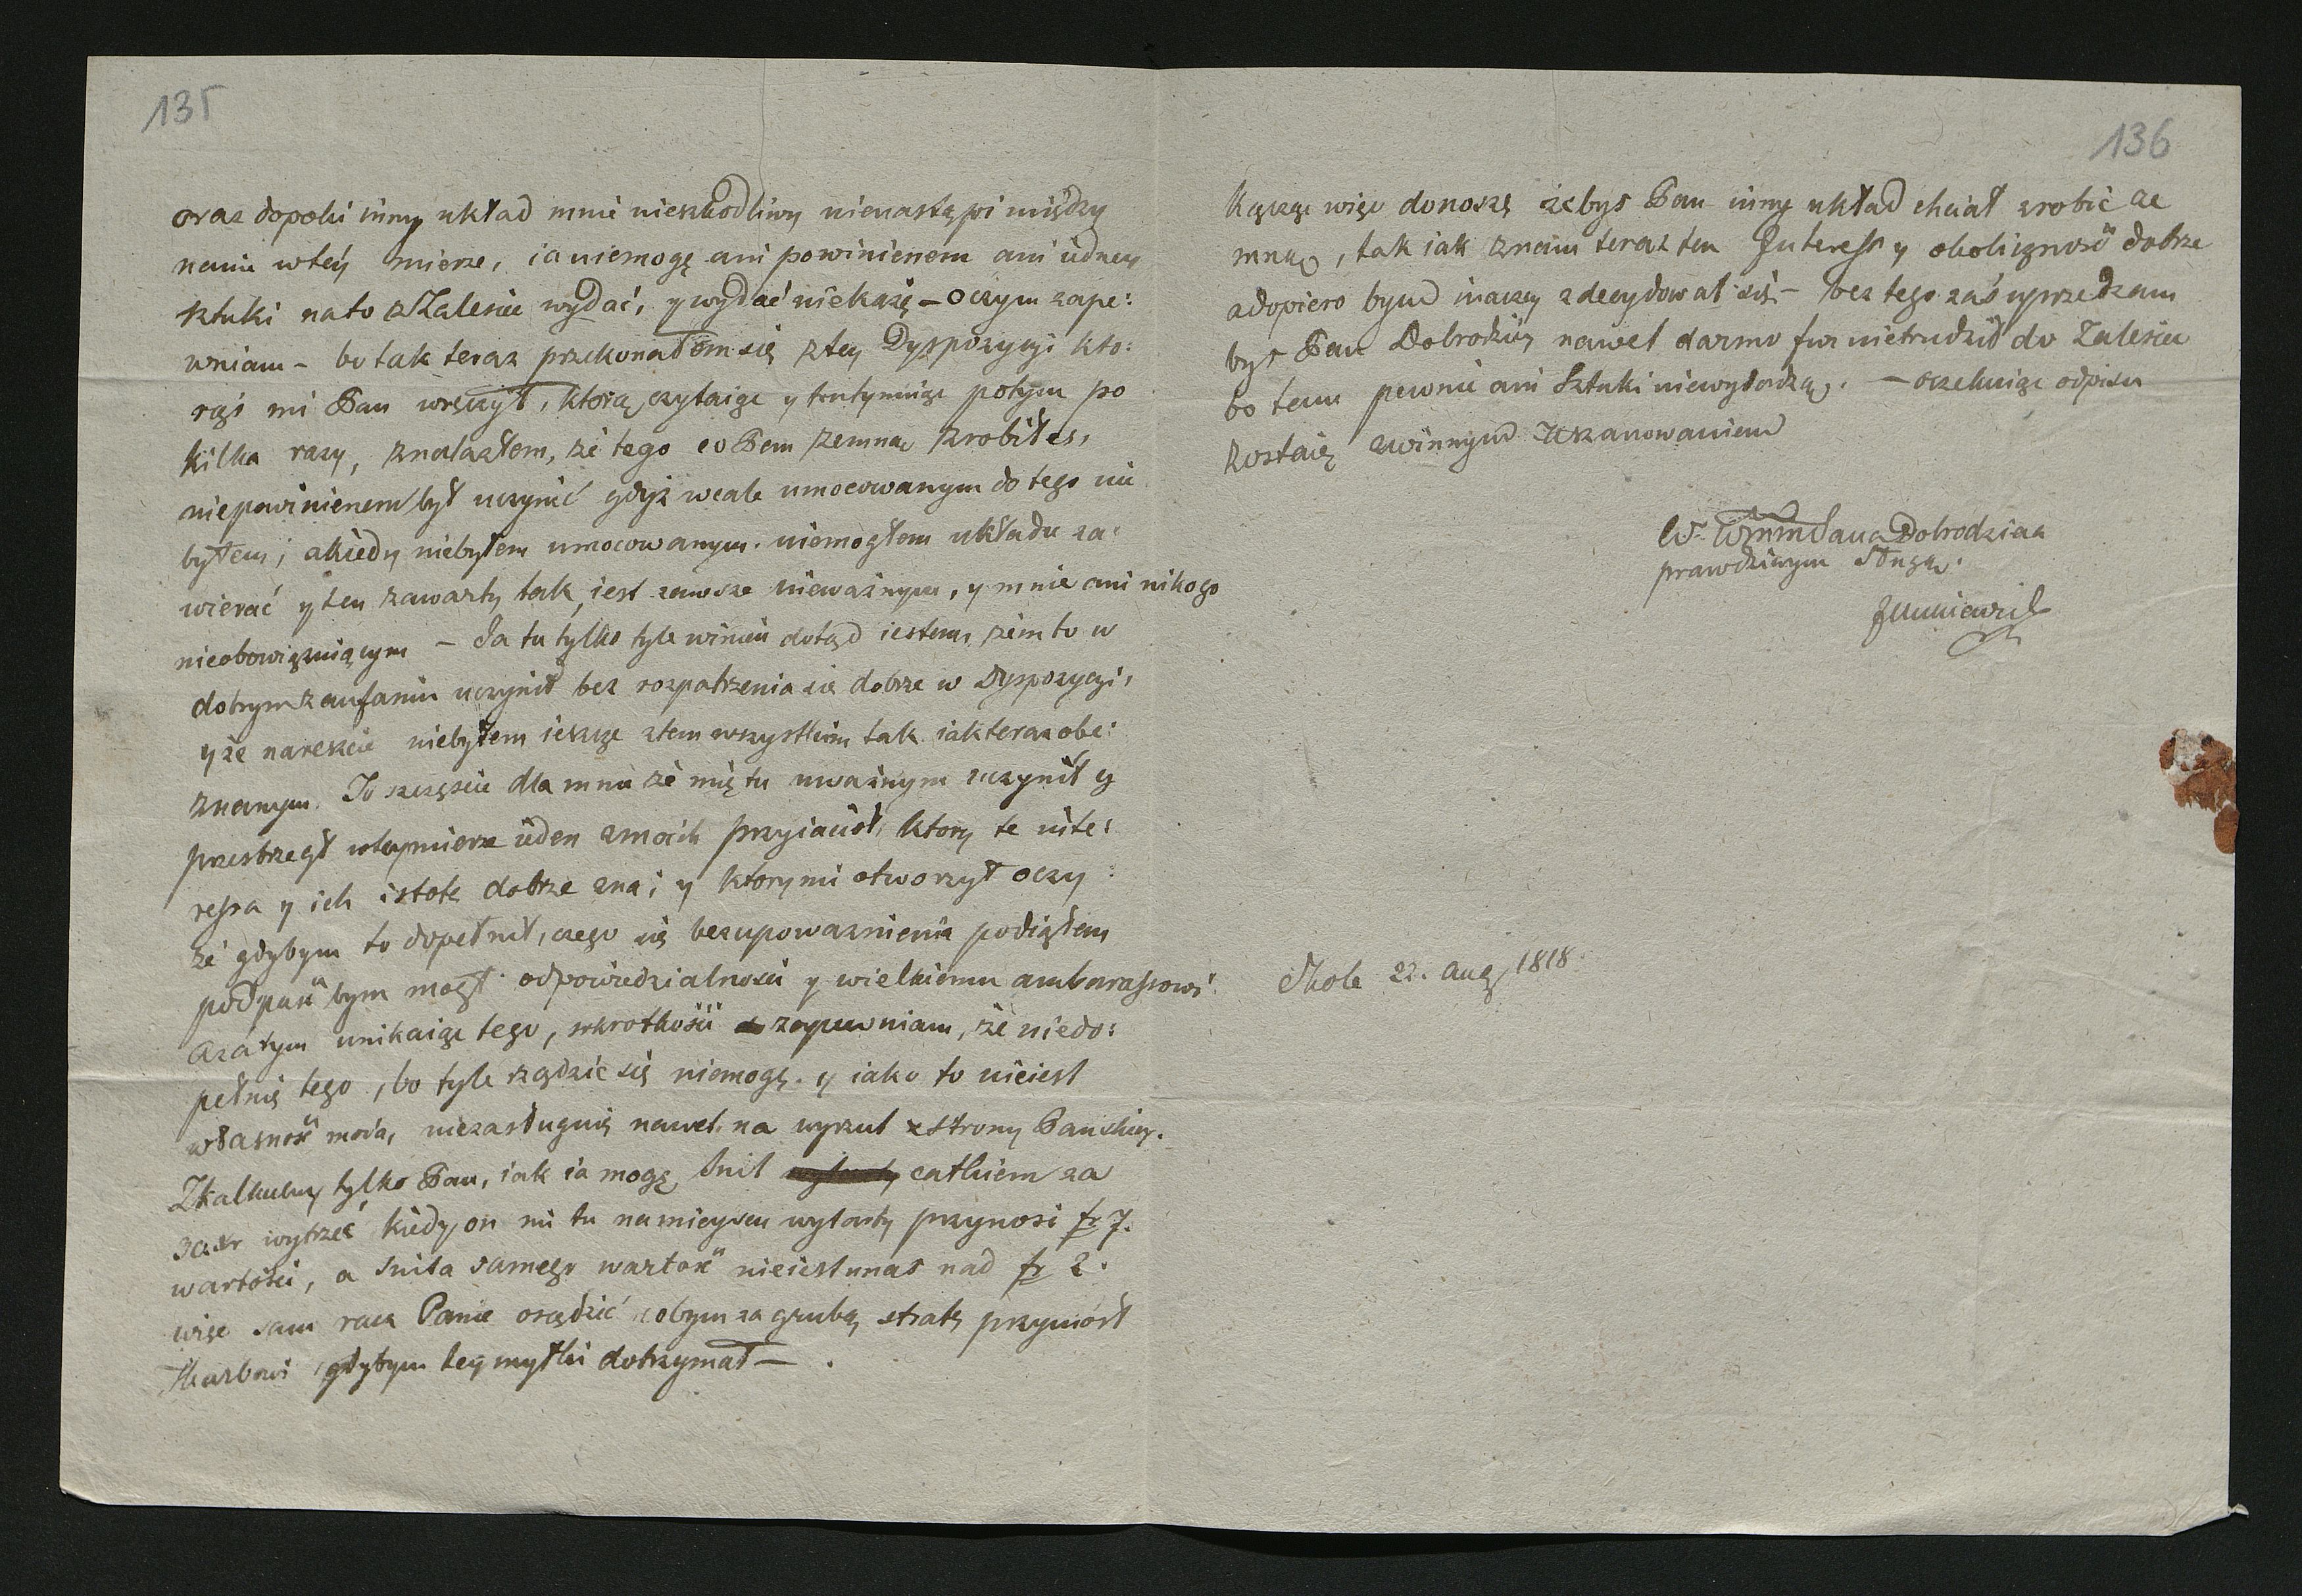 135
oraz dopoki inny układ mnie nieszkodliwy nienastąpi między
nami wtéy mierze, ia niemogę ani powinienem ani iedney
sztuki na to z Zalesia wydać, y wydać niekażę – o czym zape:
wniam – bo tak teraz przekonałem się z tey Dyspozycyi kto:
rąś mi Pan wręczył, którą czytaiąc y trutynuiąc potym po
kilka razy, znalazłem, że tego co Pan zemną zrobiłes,
niepowinienem był uczynić gdyż wcale umocowanym do tego nie
byłem; a kiedy niebyłem umocowanym. niemogłem układu za:
wierać y ten zawarty tak iest zawsze nieważnym, y mnie ani nikogo
nieobowiązuiącym – Ja tu tylko tyle winien dotąd iestem, żem to w
dobrym zaufaniu uczynił bez rozpatrzenia się dobrze w Dyspozycyi,
y że nareszcie niebyłem ieszcze z tem wszystkim tak iak teraz obe:
znanym. To szczęście dla mnie że mię tu uważnym uczynił y
przestrzegł wtey mierze ieden z moich przyiaciół, ktory te inte:
ressa y ich istotę dobrze zna; y ktory mi otworzył oczy:
że gdybym to dopełnił, czego się bez upoważnienia podiąłem
podpaść bym mogł odpowiedzialności y wielkiemu ambarassowi.
a zatym unikaiąc tego, wkrotkości zapewniam, że niedo:
pełnię tego, bo tyle rządzić się niemogę. y iako to nieiest
własność moia, niezasługuię nawet na wyrzut z strony Panskiey.
Zkalkuluy tylko Pan, iak ia mogę Snit całkiem za
30 xr wytrzeć kiedy on mi tu na mieyscu wytarty przynosi fr 7.
wartości, a Snita samego wartość nieiest u nas nad fr 2.
więc sam racz Panie osądzić iobym za grubą stratę przyniosł
Skarbowi gdybym tey myłki dotrzymał – .
136
Kączę więc donoszę żebys Pan inny układ chciał zrobić ze
mną, tak iak znam teraz ten Interess y okoliczność dobrze
a dopiero bym inaczey zdecydował się – bez tego zaś uprzedzam
bys Pan Dobrodziey nawet darmo fur nietrudził do Zalesia
bo tam pewnie ani Sztuki niewydadzą. – oczekuiąc odpisu
zostaię z winnym Uszanowaniem
W. Wmm Pana Dobrodzieia
prawdziwym sługą.
Skole 22. Aug 1818.